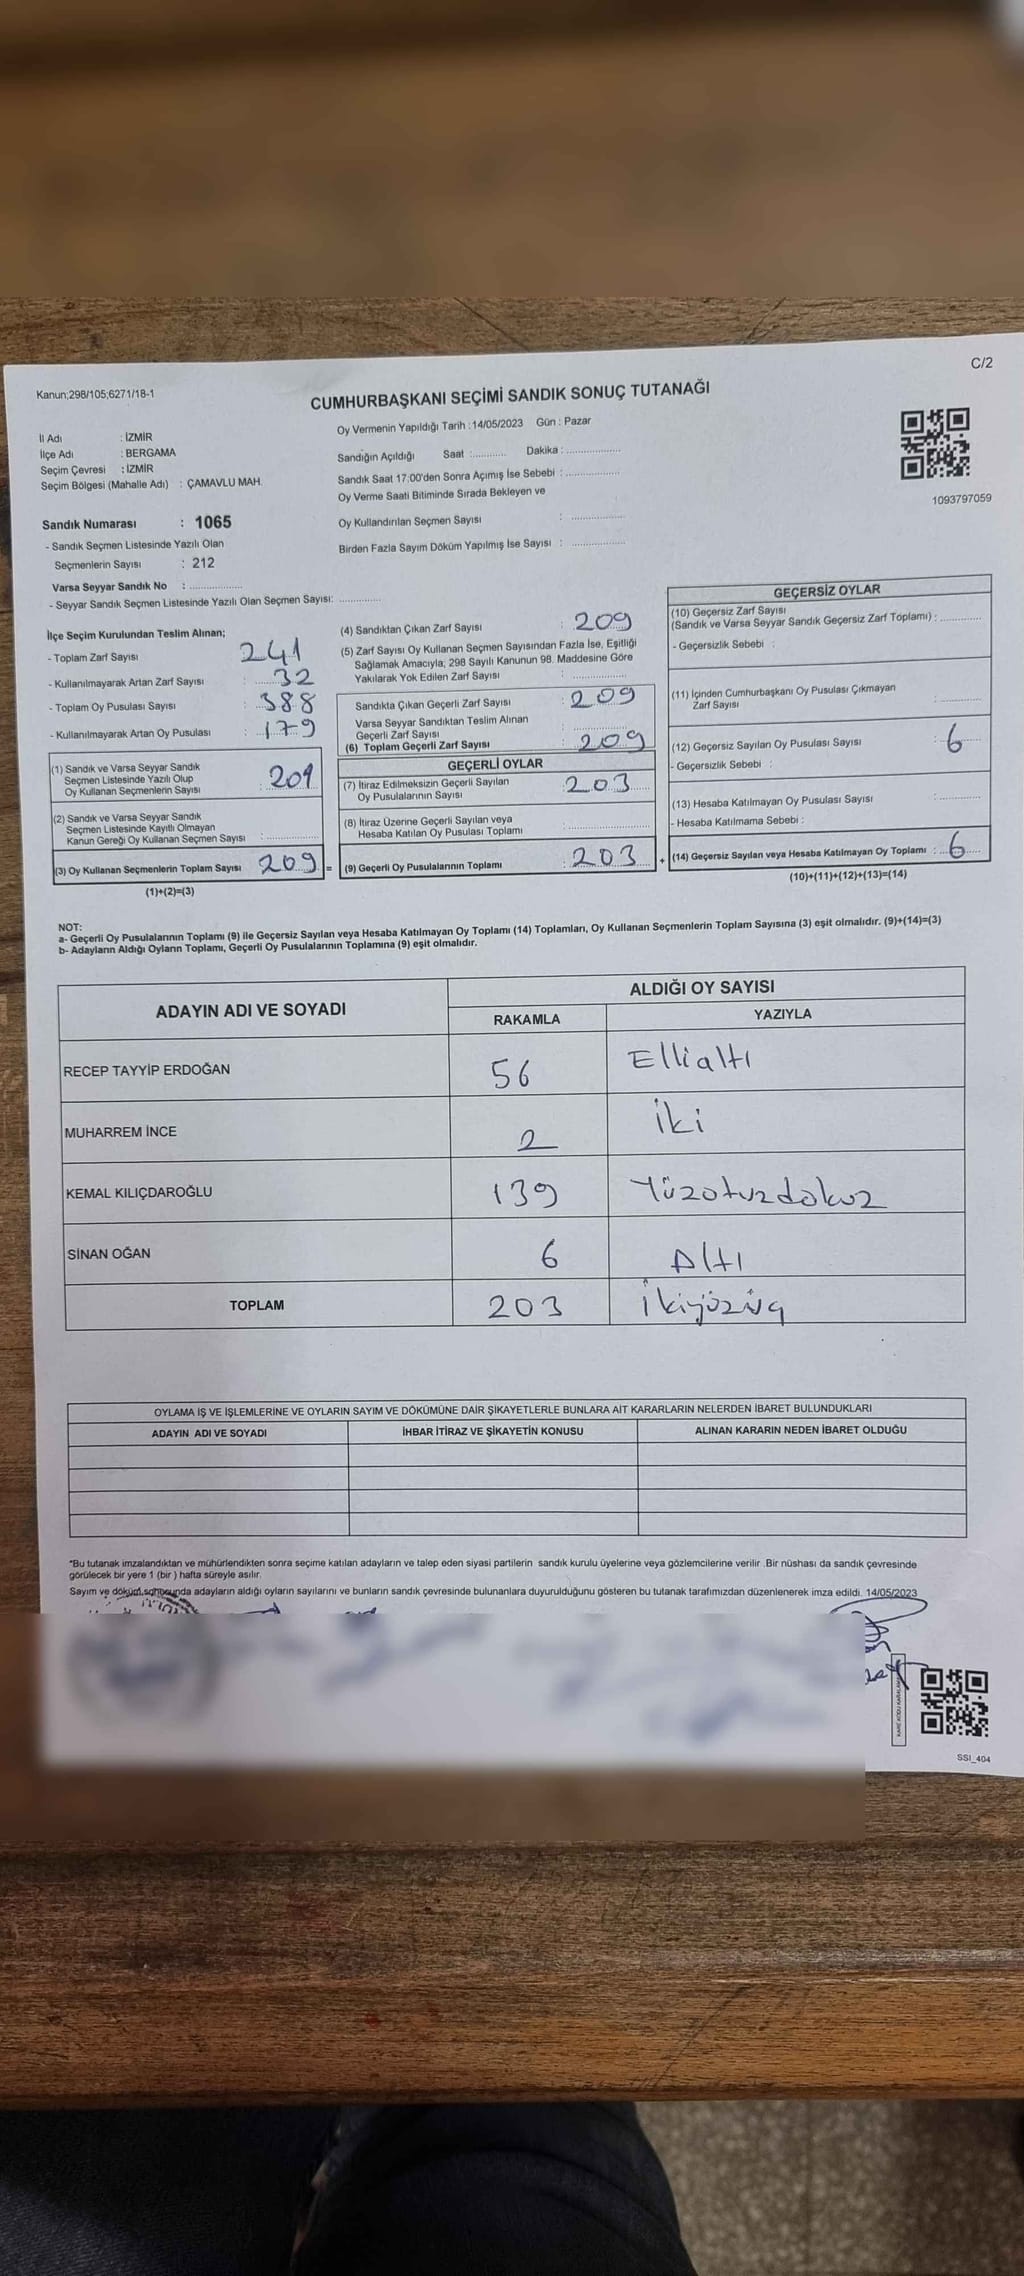 C/2
Kanun;298/105;6271/18-1
CUMHURBAŞKANI SEÇİMİ SANDIK SONUÇ TUTANAĞI
İl Adı : İZMİR
İlçe Adı : BERGAMA
Seçim Çevresi : İZMİR
Seçim Bölgesi (Mahalle Adı) : ÇAMAVLU MAH.
Oy Vermenin Yapıldığı Tarih :14/05/2023 Gün : Pazar
Sandığın Açıldığı Saat :........... Dakika :..................
Sandık Saat 17:00'den Sonra Açımış İse Sebebi :..................
Oy Verme Saati Bitiminde Sırada Bekleyen ve
Oy Kullandırılan Seçmen Sayısı : ..................
Birden Fazla Sayım Döküm Yapılmış İse Sayısı : ..................
1093797059
Sandık Numarası : 1065
- Sandık Seçmen Listesinde Yazılı Olan
Seçmenlerin Sayısı : 212
Varsa Seyyar Sandık No : ..................
- Seyyar Sandık Seçmen Listesinde Yazılı Olan Seçmen Sayısı: ..............
İlçe Seçim Kurulundan Teslim Alınan;
- Toplam Zarf Sayısı 241
- Kullanılmayarak Artan Zarf Sayısı : 32
- Toplam Oy Pusulası Sayısı : 388
- Kullanılmayarak Artan Oy Pusulası : 179
(1) Sandık ve Varsa Seyyar Sandık
Seçmen Listesinde Yazılı Olup
Oy Kullanan Seçmenlerin Sayısı : 209
(2) Sandık ve Varsa Seyyar Sandık
Seçmen Listesinde Kayıtlı Olmayan
Kanun Gereği Oy Kullanan Seçmen Sayısı :..................
(3) Oy Kullanan Seçmenlerin Toplam Sayısı 209 =
(1)+(2)=(3)
(4) Sandıktan Çıkan Zarf Sayısı : 209
(5) Zarf Sayısı Oy Kullanan Seçmen Sayısından Fazla İse, Eşitliği
Sağlamak Amacıyla; 298 Sayılı Kanunun 98. Maddesine Göre
Yakılarak Yok Edilen Zarf Sayısı : ..................
Sandıkta Çıkan Geçerli Zarf Sayısı : 209
Varsa Seyyar Sandıktan Teslim Alınan
Geçerli Zarf Sayısı
(6) Toplam Geçerli Zarf Sayısı : 209
GEÇERLİ OYLAR
(7) İtiraz Edilmeksizin Geçerli Sayılan
Oy Pusulalarının Sayısı : 203
(8) İtiraz Üzerine Geçerli Sayılan veya
Hesaba Katılan Oy Pusulası Toplamı :..................
(9) Geçerli Oy Pusulalarının Toplamı : 203 +
GEÇERSİZ OYLAR
(10) Geçersiz Zarf Sayısı
(Sandık ve Varsa Seyyar Sandık Geçersiz Zarf Toplamı) : ............
- Geçersizlik Sebebi :
(11) İçinden Cumhurbaşkanı Oy Pusulası Çıkmayan
Zarf Sayısı :............
(12) Geçersiz Sayılan Oy Pusulası Sayısı : 6
- Geçersizlik Sebebi :
(13) Hesaba Katılmayan Oy Pusulası Sayısı :............
- Hesaba Katılmama Sebebi :
(14) Geçersiz Sayılan veya Hesaba Katılmayan Oy Toplamı : 6
(10)+(11)+(12)+(13)=(14)
NOT:
a- Geçerli Oy Pusulalarının Toplamı (9) ile Geçersiz Sayılan veya Hesaba Katılmayan Oy Toplamı (14) Toplamları, Oy Kullanan Seçmenlerin Toplam Sayısına (3) eşit olmalıdır. (9)+(14)=(3)
b- Adayların Aldığı Oyların Toplamı, Geçerli Oy Pusulalarının Toplamına (9) eşit olmalıdır.
ADAYIN ADI VE SOYADI ALDIĞI OY SAYISI
RAKAMLA YAZIYLA
RECEP TAYYİP ERDOĞAN 56 Ellialtı
MUHARREM İNCE 2 İki
KEMAL KILIÇDAROĞLU 139 Yüzotuzdokuz
SİNAN OĞAN 6 Altı
TOPLAM 203 İkiyüzüç
OYLAMA İŞ VE İŞLEMLERİNE VE OYLARIN SAYIM VE DÖKÜMÜNE DAİR ŞİKAYETLERLE BUNLARA AİT KARARLARIN NELERDEN İBARET BULUNDUKLARI
ADAYIN ADI VE SOYADI İHBAR İTİRAZ VE ŞİKAYETİN KONUSU ALINAN KARARIN NEDEN İBARET OLDUĞU
"Bu tutanak imzalandıktan ve mühürlendikten sonra seçime katılan adayların ve talep eden siyasi partilerin sandık kurulu üyelerine veya gözlemcilerine verilir .Bir nüshası da sandık çevresinde
görülecek bir yere 1 (bir ) hafta süreyle asılır.
Sayım ve döküm sonucunda adayların aldığı oyların sayılarını ve bunların sandık çevresinde bulunanlara duyurulduğunu gösteren bu tutanak tarafımızdan düzenlenerek imza edildi. 14/05/2023
SSI_404